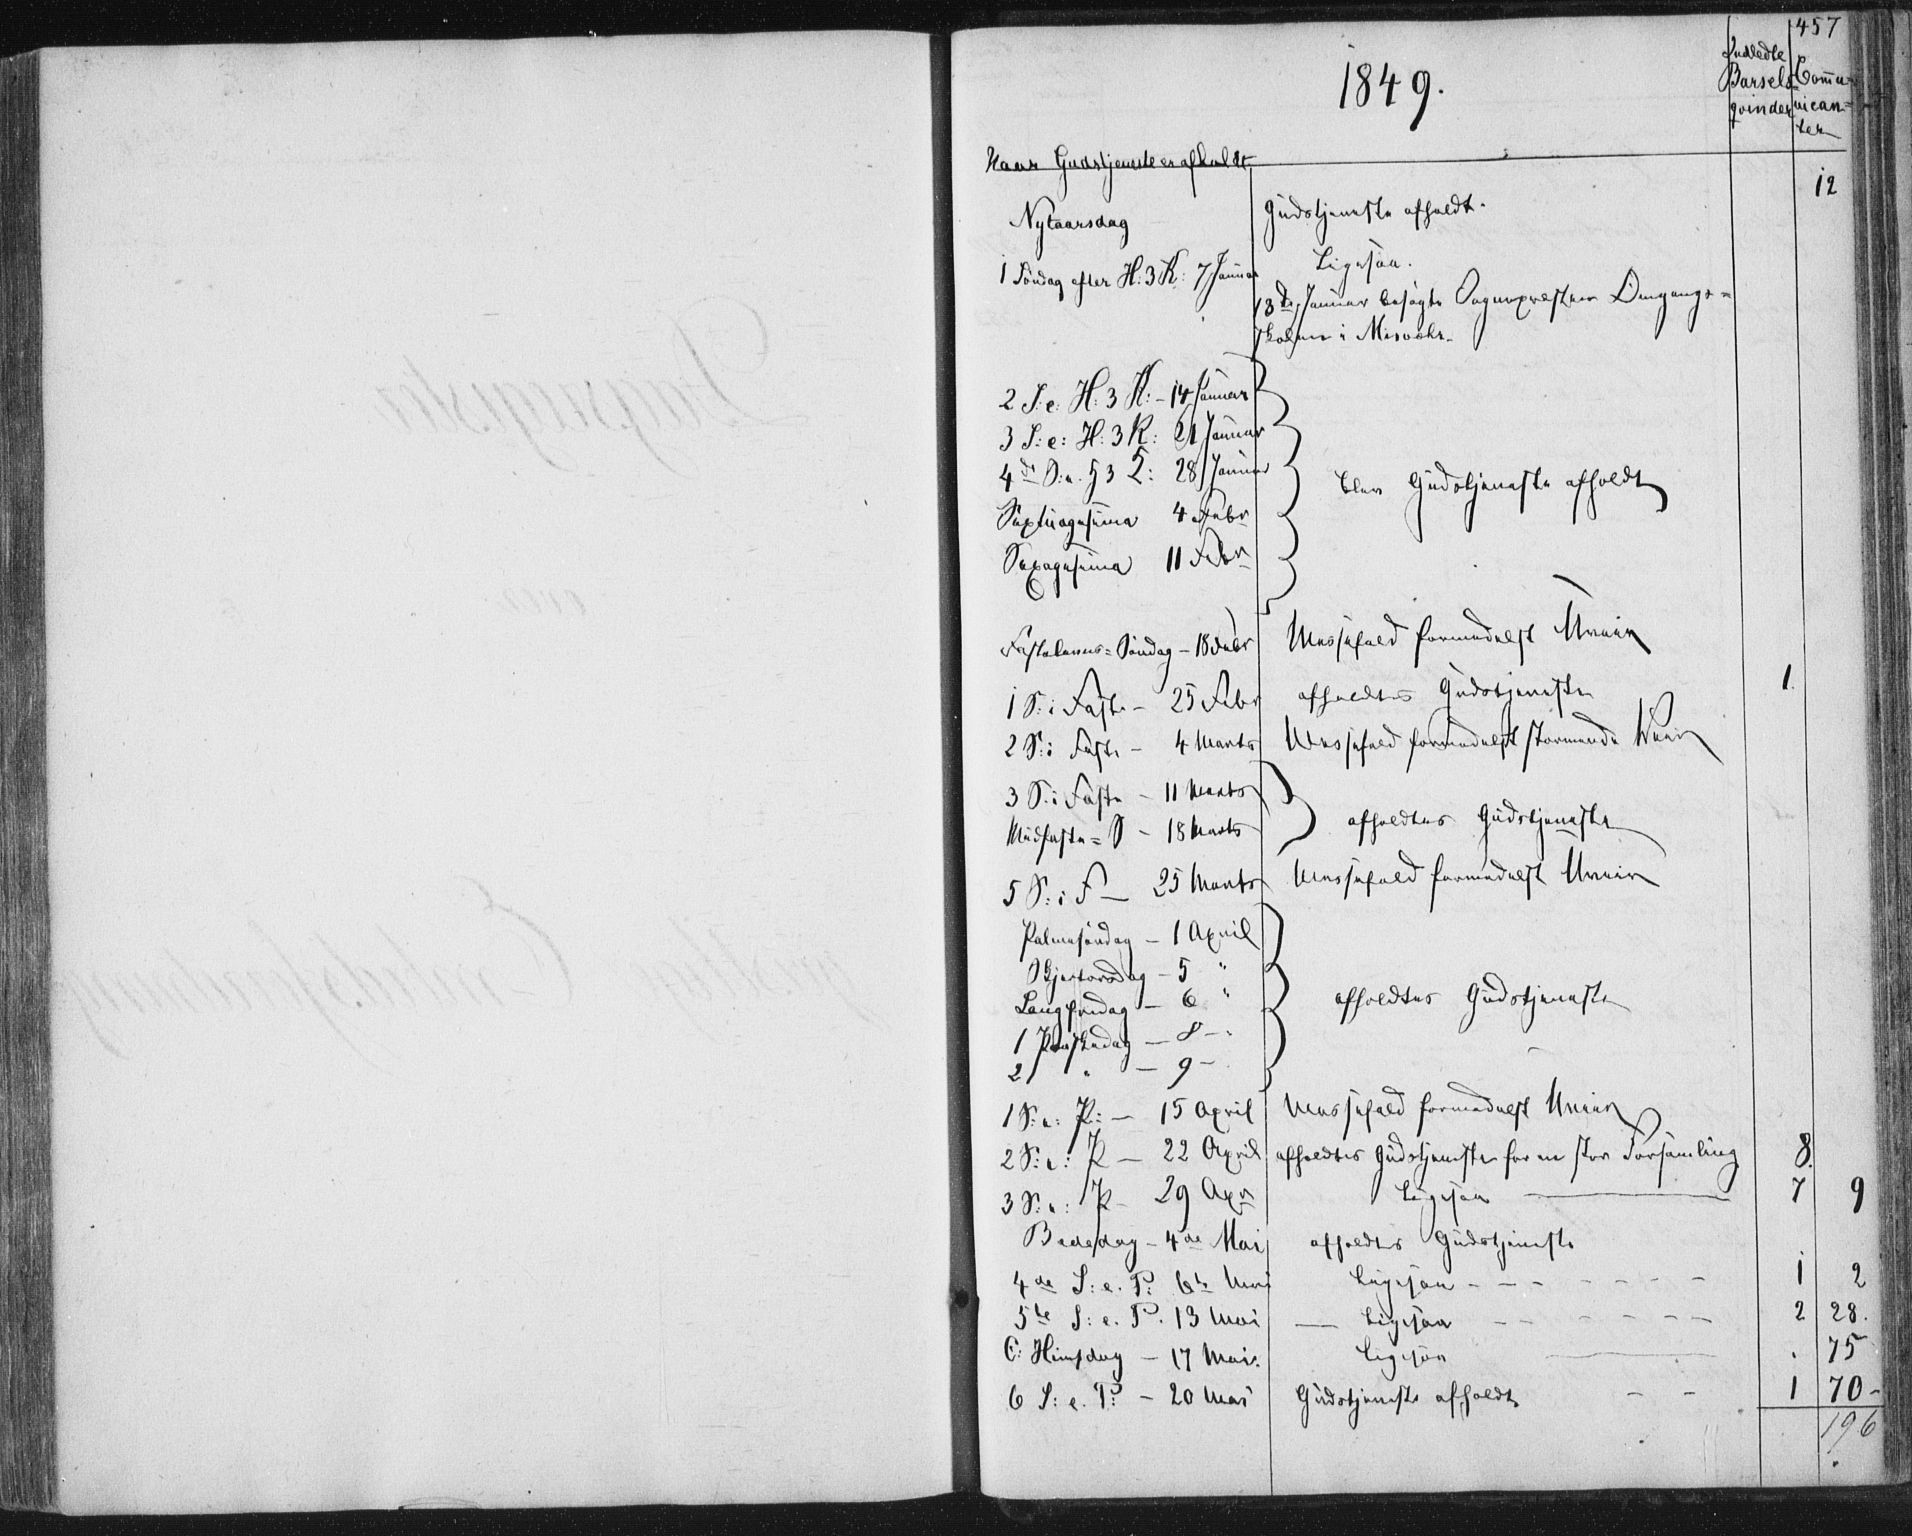 457
1849.
Indledte Barsels-qvinder
Commu-nican-ter
Naar Gudstjeneste er afholdt.
12
Nytaarsdag Gudstjeneste afholdt.
1 Søndag efter H: 3 K: 7 Januar Ligesaa.
13de Januar besøgte Sognepresten Omgangs=
skolen i
2 S: e: H: 3 K: - 14 Januar
3 S: e: H: 3 K: 21 Januar
4de S. e. H 3 K: 28 Januar blev Gudstjeneste afholdt
Septuagesima 4 Febr
Sexagesima 11 Febr
Fastelavns=Søndag - 18 Febr Messefald formedelst Uveir
1 S: i Faste - 25 Febr afholdtes Gudstjeneste 1.
2 S: i Faste - 4 Marts Messefald formedelst stormende Veir
3 S: i Faste - 11 Marts
Midfaste=S - 18 Marts afholdtes Gudstjeneste
5 S: i F - 25 Marts Messefald formedelst Uveir
Palmesøndag - 1 April
Skjertorsdag - 5 "
Langfredag - 6 " afholdtes Gudstjeneste
1 Paaskedag - 8 - "
2 " - 9 -
1 S: e: P: - 15 April Messefald formedelst Uveir
2 S: e: P - 22 April afholdtes Gudstjeneste for en stor Forsamling 8.
3 S: e: P - 29 Apr Ligesaa 7 9
Bededag - 4de Mai afholdtes Gudstjeneste
4de S: e. P: 6te Mai Ligesaa - - - - - - - 1 2
5te S: e. P. 13 Mai - Ligesaa - - - - - - - 2 28.
C: Himfdag - 17 Mai. Ligesaa . 75
6 S: e. P: - 20 Mai Gudstjeneste afholdt - - 1 70 -
196